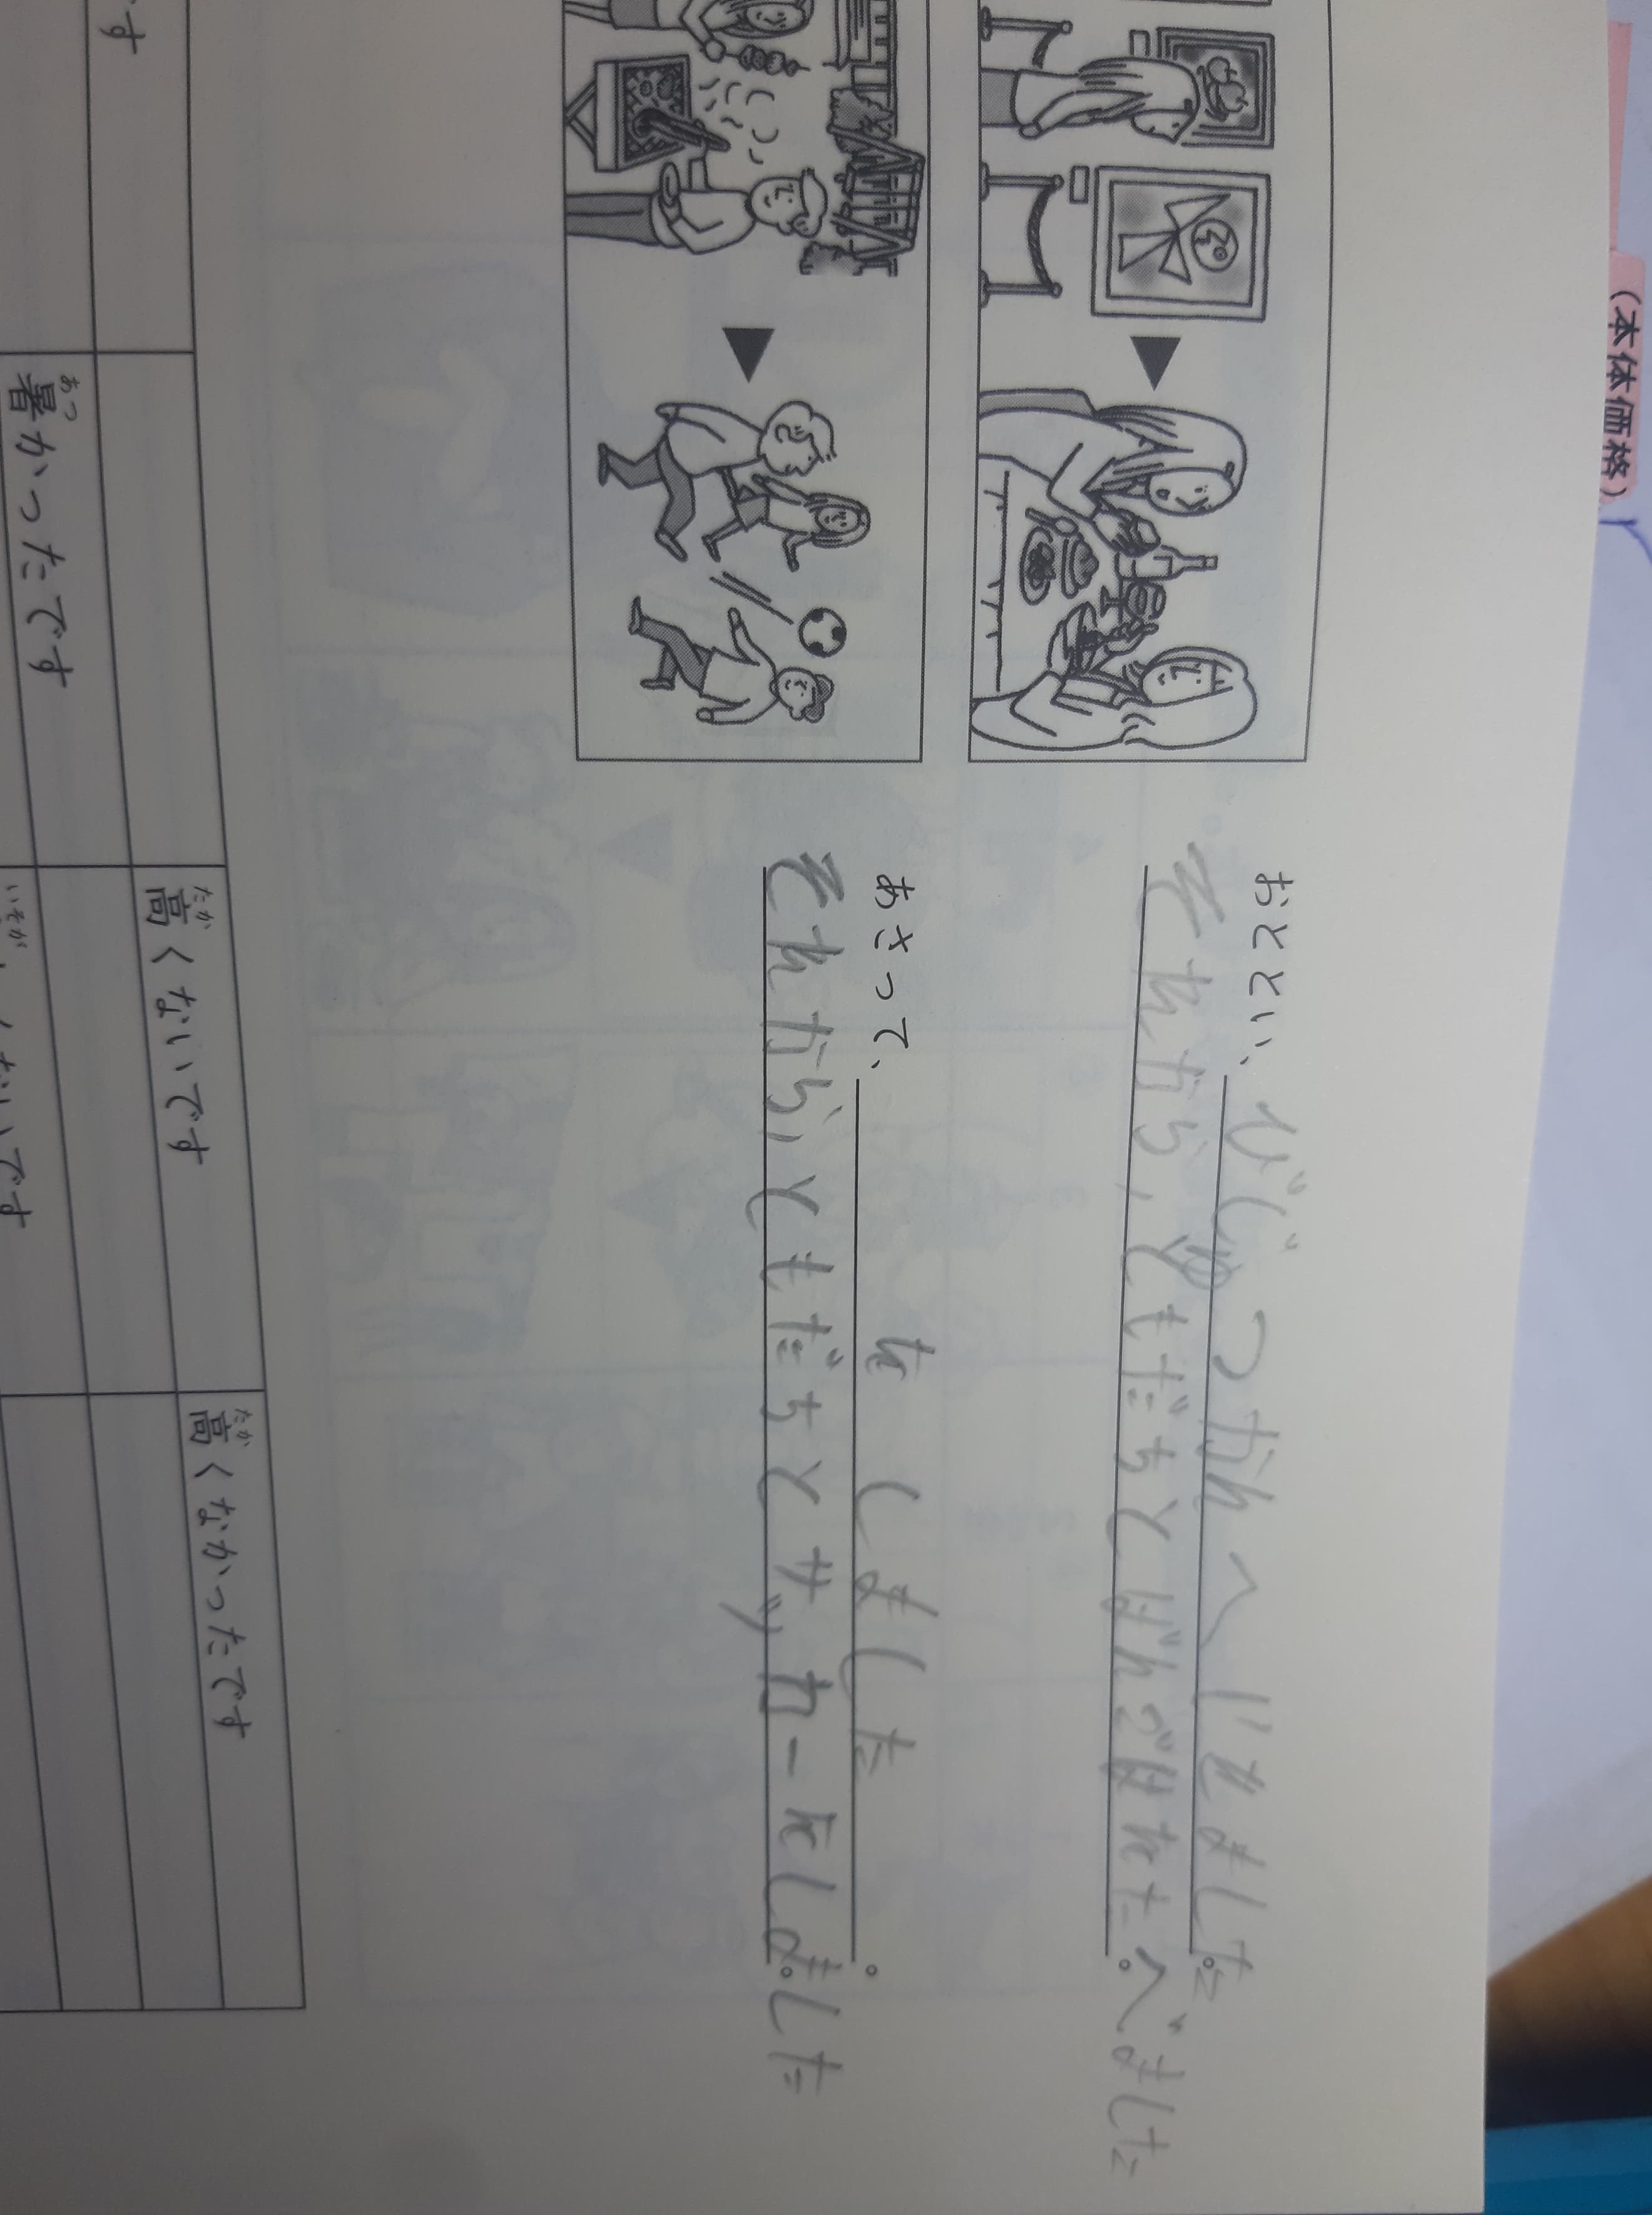 (本体価格)
おととい、びじゅつかんへ きました。
それから、ともだちとばんごはをたべました。
あさって、をしました。
それから、ともだちとサッカーをしました。
たか
高くないです
たか
高くなかったです
です
あつ
暑かったです
いそが
くないです